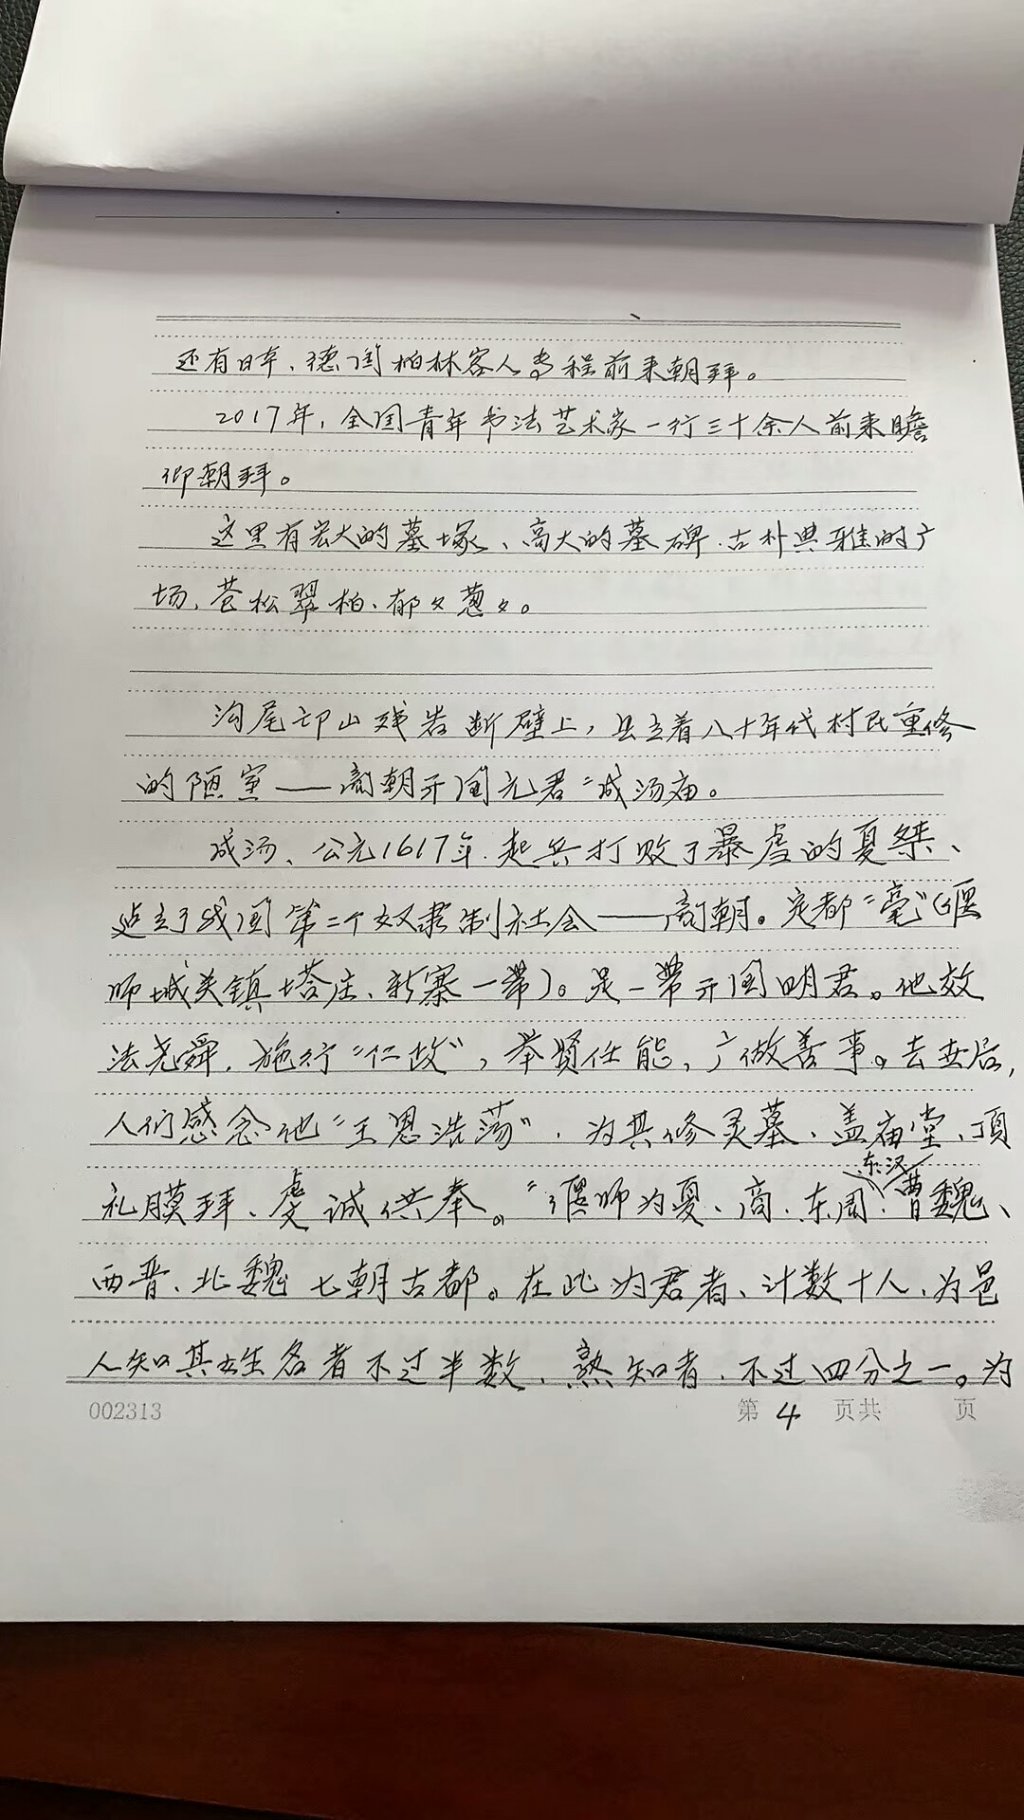 还有日本、德国柏林客人专程前来朝拜。
2017年,全国青年书法艺术家一行三十余人前来瞻
仰朝拜。
这里有宏大的墓塚、高大的墓碑、古朴典雅的广
场、苍松翠柏、郁々葱々。
沟尾邙山残岩断壁上,立着八十年代村民重修
的陋室——商朝开国元君“成汤庙。
成汤、公元1617年、起兵打败了暴虐的夏桀、
建立了我国第二个奴隶制社会——商朝。定都“亳”(偃
师城关镇塔庄、新寨一带)。是一带开国明君。他效
法尧舜,施行“仁政”,举贤任能,广做善事。去世后,
人们感念他“王恩浩荡”、为其修灵墓、盖庙堂、顶
礼膜拜、虔诚供奉。“偃师为夏、商、东周、东汉、曹魏、
西晋、北魏七朝古都。在此为君者、计数十人、为邑
人知其姓名者不过半数、熟知者、不过四分之一。为
002313 第4页共 页